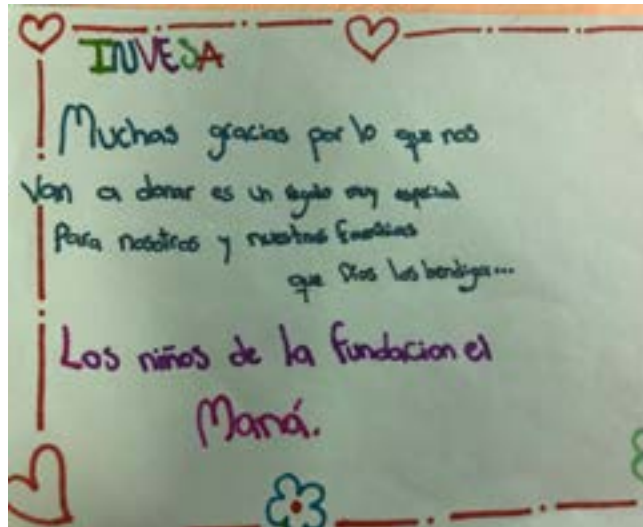 INVESA
Muchas gracias por lo que nos
van a donar es un regalo muy especial
Para nosotros y nuestras familias
que Dios los bendiga...
Los niños de la fundacion el
Maná.